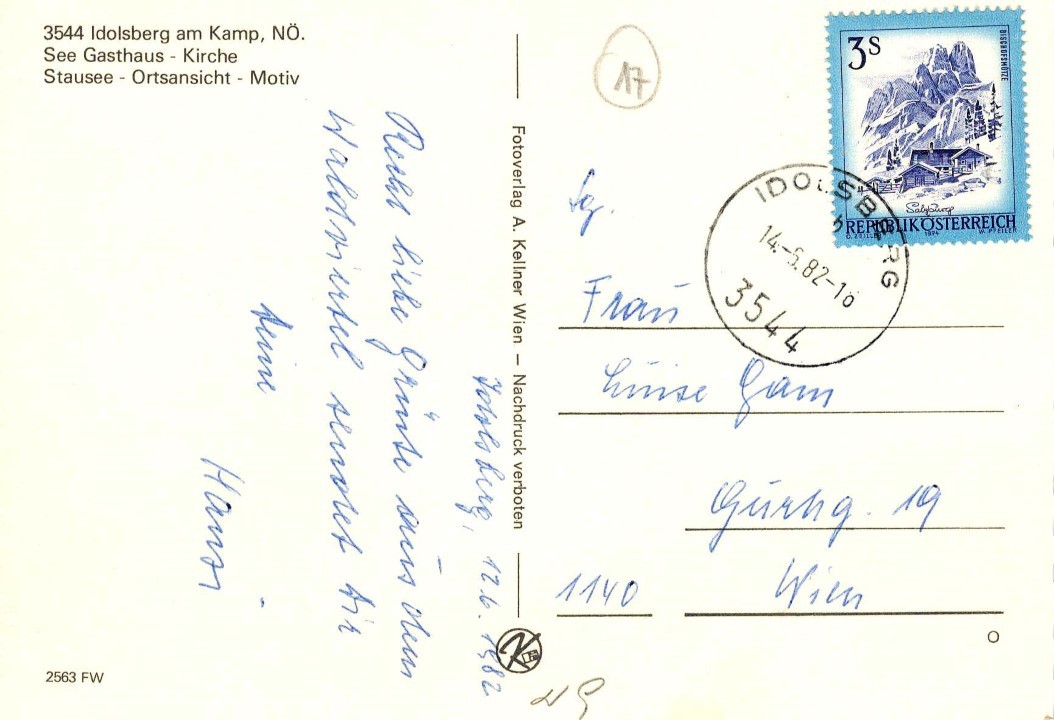 3544 Idolsberg am Kamp, NÖ.
See Gasthaus - Kirche
Stausee - Ortsansicht - Motiv
17
3 S
BISCHOFSMÜTZE
Salzburg
REPUBLIK ÖSTERREICH
1974
W. PFEILER
IDOLSBERG
14.-6.82-18
3544
Fotoverlag A. Kellner Wien – Nachdruck verboten
Idolsberg, 12.6.1982
Recht liebe Grüße aus dem
Waldviertel sendet dir
deine
Hansi
Sg.
Frau
Luise Gam
19
1140 Wien
2563 FW